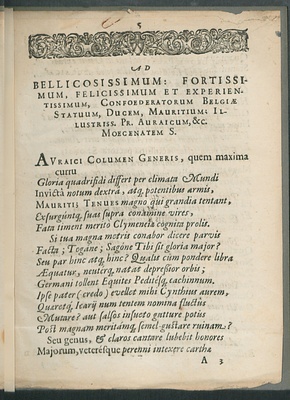 5
AD
BELLICOSISSIMUM: FORTISSI-
MUM, FELICISSIMUM ET EXPERIEN-
TISSIMUM, CONFOEDERATORUM BELGIÆ
STATUUM, DUCEM, MAURITIUM; IL-
LUSTRISS. PR. AURAICUM, &c.
MOECENATEM S.
AVRAICI COLUMEN GENERIS, quem maxima
curru
Gloria quadrifidi differt per climata Mundi
Invictâ notum dextrâ, atq; potentibus armis,
MAURITI TENUES magno qui grandia tentant,
Exsurguntq; suas supra conamine vires,
Fata timent merito Clymeneia cognita prolis.
Si tua magna metris conabor dicere parvis
Facta; Togane; Sagóne Tibi sit gloria major?
Seu par hinc atq; hinc? Qualis cùm pondere libra
Æquatur, neuterq; natat depressior orbis;
Germani tollent Equites Peditésq; cachinnum.
Ipse pater (credo) evellet mihi Cynthius aurem,
Quaretq; Icarij num tentem nomina fluctûs
Mutare? aut salsos infueto gutture potus
Post magnam meritámq; semel gustare ruinam?
Seu genus, & claros cantare lubebit honores
Majorum, veterésque perenni intexere cartha
A 3